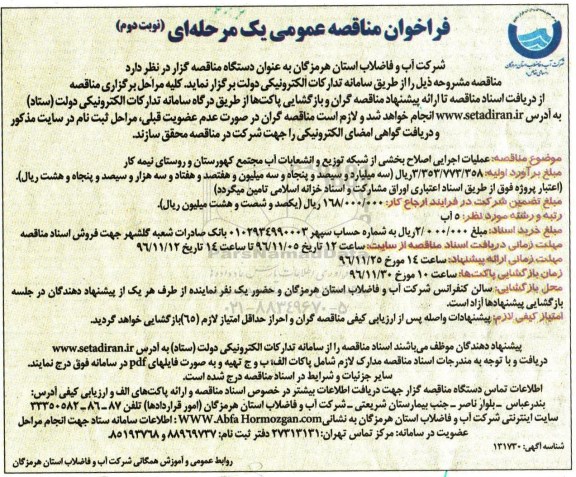 فراخوان مناقصه عمومی یک مرحله‌ای (نوبت دوم)
شرکت آب و فاضلاب استان هرمزگان به عنوان دستگاه مناقصه گزار در نظر دارد
مناقصه مشروحه ذیل را از طریق سامانه تدارکات الکترونیکی دولت برگزار نماید. کلیه مراحل برگزاری مناقصه
از دریافت اسناد مناقصه تا ارائه پیشنهاد مناقصه گران و بازگشایی پاکت‌ها از طریق درگاه سامانه تدارکات الکترونیکی دولت (ستاد)
به آدرس www.setadiran.ir انجام خواهد شد و لازم است مناقصه گران در صورت عدم عضویت قبلی، مراحل ثبت نام در سایت مذکور
و دریافت گواهی امضای الکترونیکی را جهت شرکت در مناقصه محقق سازند.
موضوع مناقصه: عملیات اجرایی اصلاح بخشی از شبکه توزیع و انشعابات آب مجتمع کهورستان و روستای نیمه کار
مبلغ برآورد اولیه: ۳/۳۵۳/۷۷۳/۳۵۸ریال (سه میلیارد و سیصد و پنجاه و سه میلیون و هفتصد و هفتاد و سه هزار و سیصد و پنجاه و هشت ریال).
(اعتبار پروژه فوق از طریق اسناد اعتباری اوراق مشارکت و اسناد خزانه اسلامی تامین میگردد)
مبلغ تضمین شرکت در فرایند ارجاع کار: ۱۶۸/۰۰۰/۰۰۰ ریال (یکصد و شصت و هشت میلیون ریال).
رتبه و رشته مورد نظر: ۵ آب
مبلغ خرید اسناد: مبلغ ۲/۰۰۰/۰۰۰ریال به شماره حساب سپهر ۰۱۰۲۹۳۴۹۹۰۰۰۳ بانک صادرات شعبه گلشهر جهت فروش اسناد مناقصه
مهلت زمانی دریافت اسناد مناقصه از سایت: ساعت ۱۲ تاریخ ۹۶/۱۱/۰۵ تا ساعت ۱۴ تاریخ ۹۶/۱۱/۱۲
مهلت زمانی ارائه پیشنهاد: ساعت ۱۴ مورخ ۹۶/۱۱/۲۵
زمان بازگشایی پاکت‌ها: ساعت ۱۰ مورخ ۹۶/۱۱/۳۰
محل بازگشایی: سالن کنفرانس شرکت آب و فاضلاب استان هرمزگان و حضور یک نفر نماینده از طرف هر یک از پیشنهاد دهندگان در جلسه
بازگشایی پیشنهادها آزاد است.
امتیاز کیفی لازم: پیشنهادات واصله پس از ارزیابی کیفی مناقصه گران و احراز حداقل امتیاز لازم (۶۵) بازگشایی خواهد گردید.
پیشنهاد دهندگان موظف می‌باشند اسناد مناقصه را از سامانه تدارکات الکترونیکی دولت (ستاد) به آدرس www.setadiran.ir
دریافت و با توجه به مندرجات اسناد مناقصه مدارک لازم شامل پاکات الف، ب و ج تهیه و به صورت فایلهای pdf در سامانه فوق درج نمایند.
سایر جزئیات و شرایط در اسناد مناقصه درج شده است.
اطلاعات تماس دستگاه مناقصه گزار جهت دریافت اطلاعات بیشتر در خصوص اسناد مناقصه و ارائه پاکت‌های الف و ارزیابی کیفی آدرس:
بندرعباس _ بلوار ناصر _ جنب بیمارستان شریعتی _ شرکت آب و فاضلاب استان هرمزگان (امور قراردادها) تلفن ۸۷-۸۶-۳۳۳۵۰۵۸۲
سایت اینترنتی شرکت آب و فاضلاب استان هرمزگان به نشانی WWW.Abfa Hormozgan.com : اطلاعات سامانه ستاد جهت انجام مراحل
عضویت در سامانه: مرکز تماس تهران: ۲۷۳۱۳۱۳۱ دفتر ثبت نام: ۸۸۹۶۹۷۳۷ و ۸۵۱۹۳۷۶۸.
شناسه آگهی: ۱۳۱۷۳۰
روابط عمومی و آموزش همگانی شرکت آب و فاضلاب استان هرمزگان